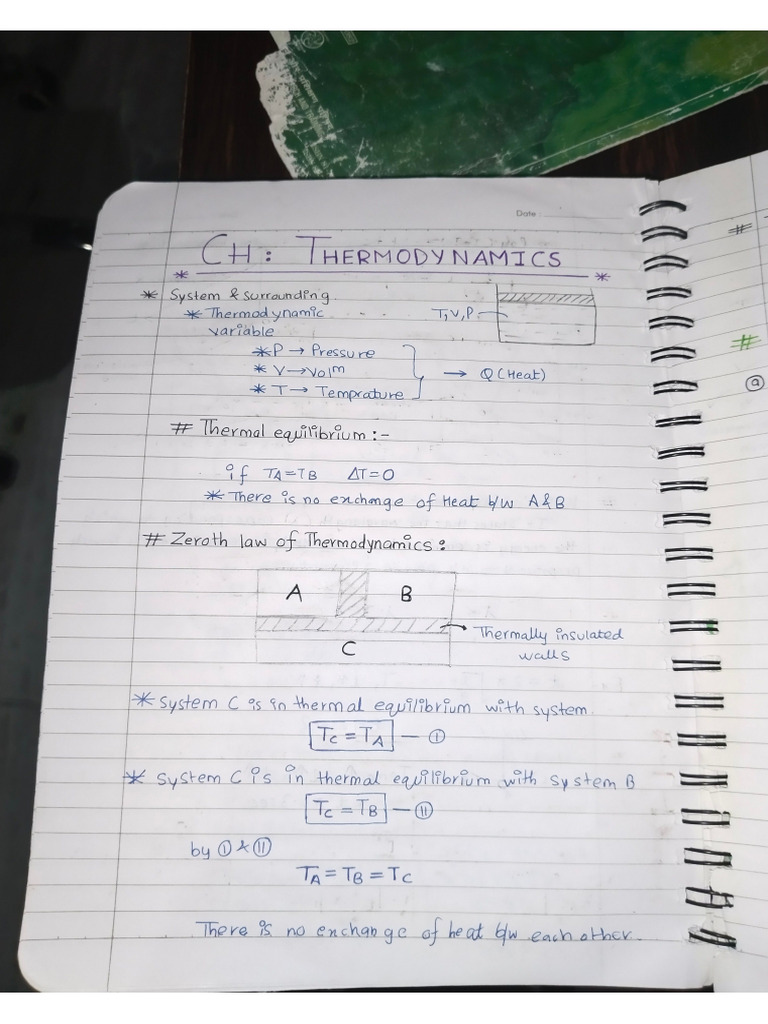 Date
CH: THERMODYNAMICS
* System & surrounding.
* Thermodynamic
variable
T,V,P
* P → Pressure
* V → Volm
* T → Temprature
→ Q (Heat)
# Thermal equilibrium :-
if TA = TB ΔT = 0
* There is no exchange of Heat b/w A & B
# Zeroth law of Thermodynamics :
A B
C
→ Thermally insulated
walls
* System C is in thermal equilibrium with system.
TC = TA — I
* System C is in thermal equilibrium with system B
TC = TB — II
by I & II
TA = TB = TC
There is no exchange of heat b/w each other.
#
#
a